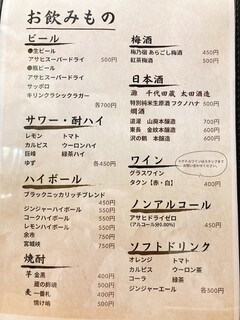 お飲みもの
ビール
●生ビール
アサヒスーパードライ 500円
●瓶ビール
アサヒスーパードライ
サッポロ
キリンクラシックラガー
各700円
サワー・酎ハイ
レモン トマト
カルピス ウーロンハイ
巨峰 緑茶ハイ
ゆず 各450円
ハイボール
ブラックニッカリッチブレンド
450円
ジンジャーハイボール 550円
コークハイボール 550円
レモンハイボール 550円
余市 750円
宮城峡 750円
焼酎
芋 金黒 400円
蔵の師魂 500円
麦 一番札 400円
情け嶋 500円
梅酒
梅乃宿 あらごし梅酒 450円
紅茶梅酒 500円
日本酒
灘 千代田蔵 太田酒造
特別純米生原酒 フクノハナ 500円
燗酒
道灌 山廃本醸造 700円
東長 金紋本醸造 700円
沢の鶴 本醸造 600円
ワイン
グラスワイン
タクン(赤・白) 400円
ノンアルコール
アサヒドライゼロ
(アルコール分0.00%) 450円
ソフトドリンク
オレンジ トマト
カルピス ウーロン茶
コーラ 緑茶
ジンジャーエール 各300円